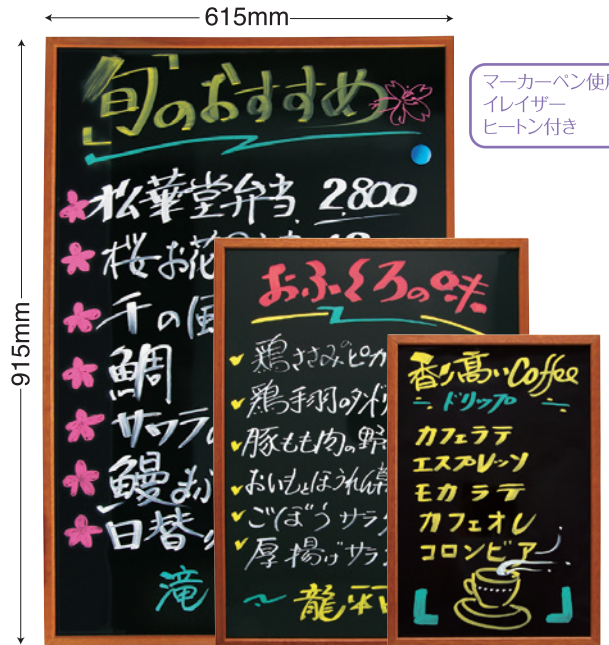 615mm
915mm
マーカーペン使用
イレイザー
ヒートン付き
「旬のおすすめ
松華堂弁当 2,800
桜お花
千の風
鯛
サワラの
鰻まぶ
日替
滝
おふくろの味
鶏ささみのピカ
鶏手羽のタンドリ
豚もも肉の野
おいもとほうれん草
ごぼうサラダ
厚揚げサラ
龍
香り高いCoffee
ドリップ
カフェラテ
エスプレッソ
モカラテ
カフェオレ
コロンビアー